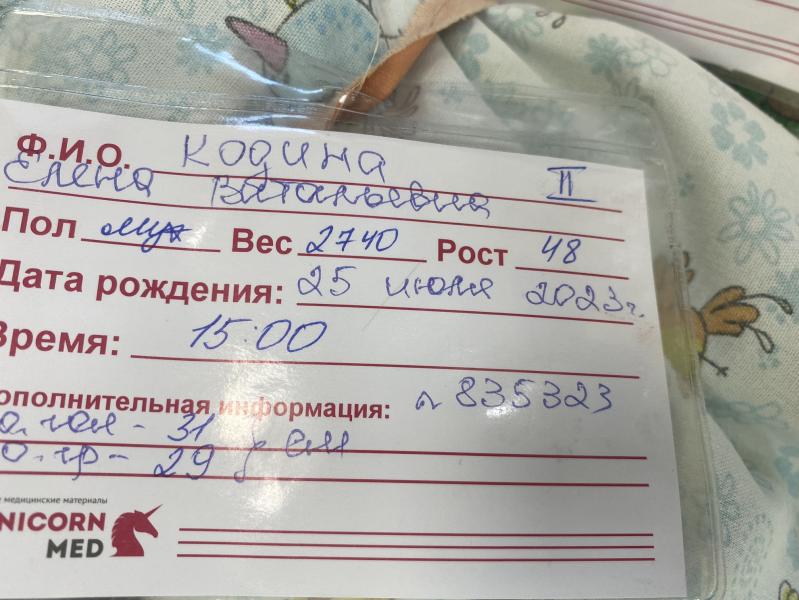 Ф.И.О. Кодина
Елена Витальевна II
Пол муж Вес 2740 Рост 48
Дата рождения: 25 июня 2023г.
Время: 15:00
ополнительная информация: 835323
о.гол - 31
о.гр - 29
е медицинские материалы
NICORN
MED